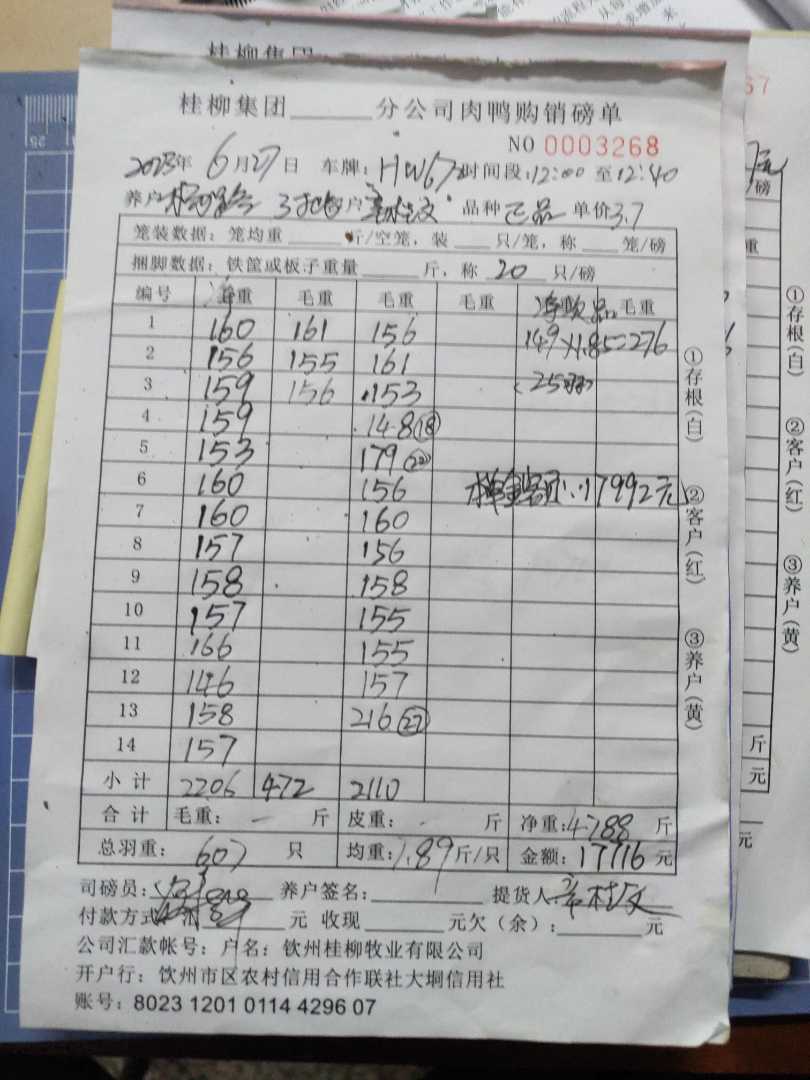 桂柳集团
桂柳集团______分公司肉鸭购销磅单
NO 0003268
2023年 6月27日 车牌：HW67 时间段：12:00 至12:40
养户 户 品种 正品 单价3.7
笼装数据：笼均重____斤/空笼，装___只/笼，称___笼/磅
捆脚数据：铁筐或板子重量_____斤，称 20 只/磅
编号 净重 毛重 毛重 毛重 毛重
1 160 161 156 149×1.85=276
2 156 155 161
3 159 156 153
4 159 148⑱
5 153 179㉒
6 160 156 17992元
7 160 160
8 157 156
9 158 158
10 157 155
11 166 155
12 146 157
13 158 216㉗
14 157
小计 2206 472 2110
合计 毛重： - 斤 皮重： - 斤 净重：4788 斤
总羽重： 607 只 均重：7.89斤/只 金额：17716 元
司磅员： 养户签名：________ 提货人
付款方式 汇 元 收现______元欠（余）：______元
公司汇款帐号：户名：钦州桂柳牧业有限公司
开户行：钦州市区农村信用合作联社大垌信用社
账号：8023 1201 0114 4296 07
①存根(白)
②客户(红)
③养户(黄)
67
磅
重
①存根(白)
②客户(红)
③养户(黄)
斤
元
元